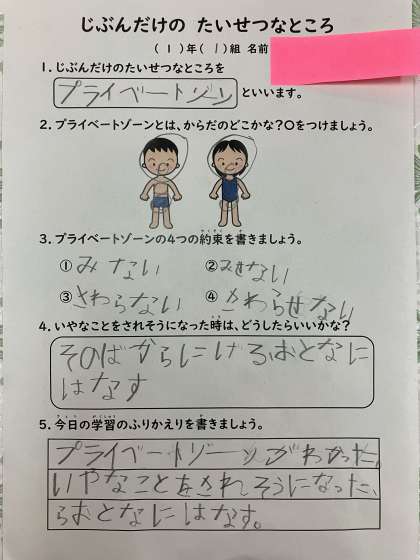 じぶんだけの たいせつなところ
(1)年(1)組 名前
1.じぶんだけのたいせつなところを
プライベートゾーン といいます。
2.プライベートゾーンとは、からだのどこかな?〇をつけましょう。
3.プライベートゾーンの4つの約束を書きましょう。
①みない ②みせない
③さわらない ④さわらせない
4.いやなことをされそうになった時は、どうしたらいいかな?
そのばからにげる。おとなに
はなす
5.今日の学習のふりかえりを書きましょう。
プライベートゾーンがわかった。
いやなことをされそうになった
らおとなにはなす。